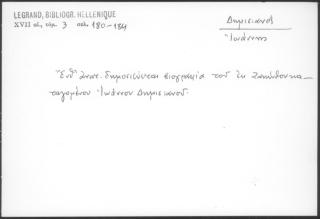 LEGRAND, BIBLIOGR. HELLENIQUE
XVII αἰ, τόμ. 3 σελ. 180-184
Δημισιανός
Ἰωάννης
Ἔνθ' ἀνωτ. δημοσιεύεται βιογραφία τοῦ ἐκ Ζακύνθου κα-
ταγομένου Ἰωάννου Δημισιανοῦ.